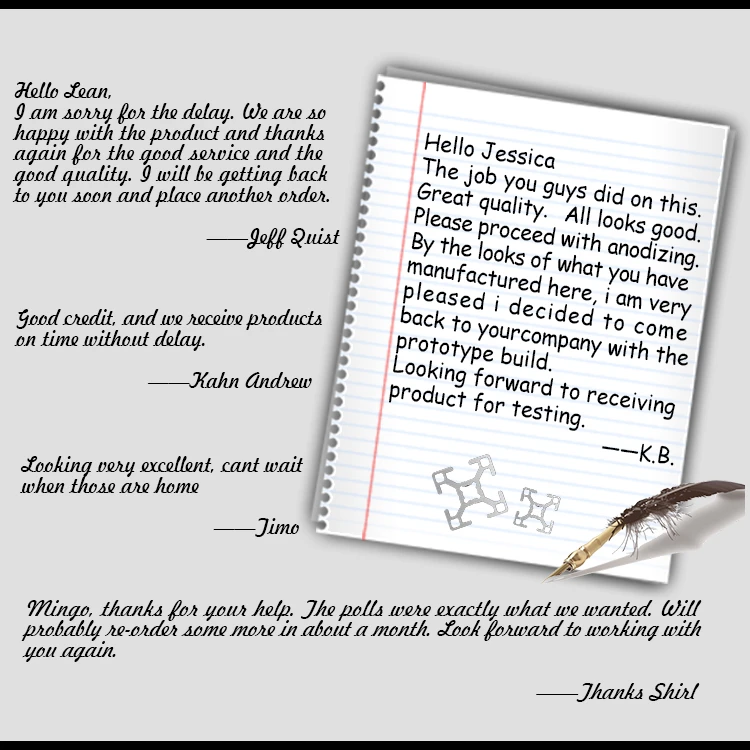 Hello Lean,
I am sorry for the delay. We are so
happy with the product and thanks
again for the good service and the
good quality. I will be getting back
to you soon and place another order.
——Jeff Quist
Good credit, and we receive products
on time without delay.
——Kahn Andrew
Looking very excellent, cant wait
when those are home
——Timo
Hello Jessica
The job you guys did on this.
Great quality. All looks good.
Please proceed with anodizing.
By the looks of what you have
manufactured here, i am very
pleased i decided to come
back to yourcompany with the
prototype build.
Looking forward to receiving
product for testing.
——K.B.
Mingo, thanks for your help. The polls were exactly what we wanted. Will
probably re-order some more in about a month. Look forward to working with
you again.
——Thanks Shirl